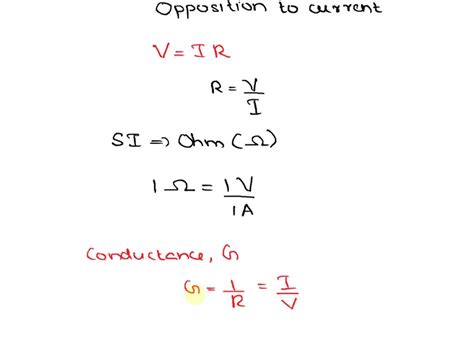 Opposition to current
V = IR
R = V/I
SI ⇒ Ohm (Ω)
1 Ω = 1V/1A
Conductance, G
G = 1/R = I/V